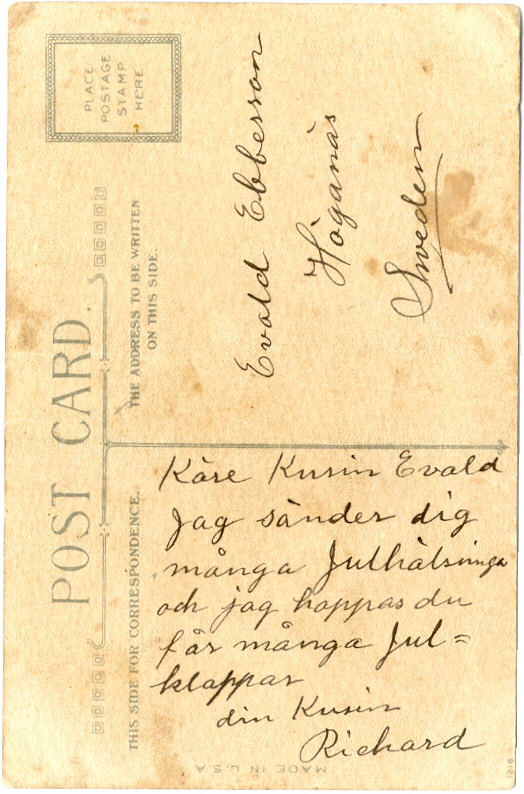 POST CARD
PLACE
POSTAGE
STAMP
HERE
THE ADDRESS TO BE WRITTEN
ON THIS SIDE.
THIS SIDE FOR CORRESPONDENCE.
Evald Ebberson
Höganäs
Sweden
Käre Kusin Evald
Jag sänder dig
många Julhälsninga
och jag hoppas du
får många Jul=
klappar
din Kusin
Richard
MADE IN U.S.A
1218